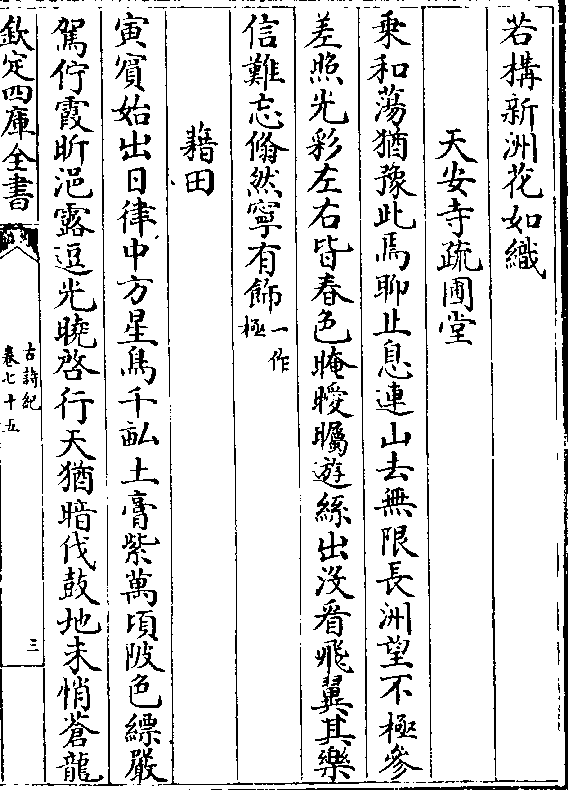 若構新洲花如織
天安寺疏圃堂
乗和蕩猶豫此焉聊止息連山去無限長洲望不極參
差照光彩左右皆春色晻曖矚遊絲出没看飛翼其樂
信難忘翛然寧有飾一作極
藉田
寅賓始出日律中方星鳥千畝土膏紫萬頃陂色縹嚴
駕佇霞昕浥露逗光曉啓行天猶暗伐鼓地未悄蒼龍
欽定四庫全書
古詩紀
卷七十五
三